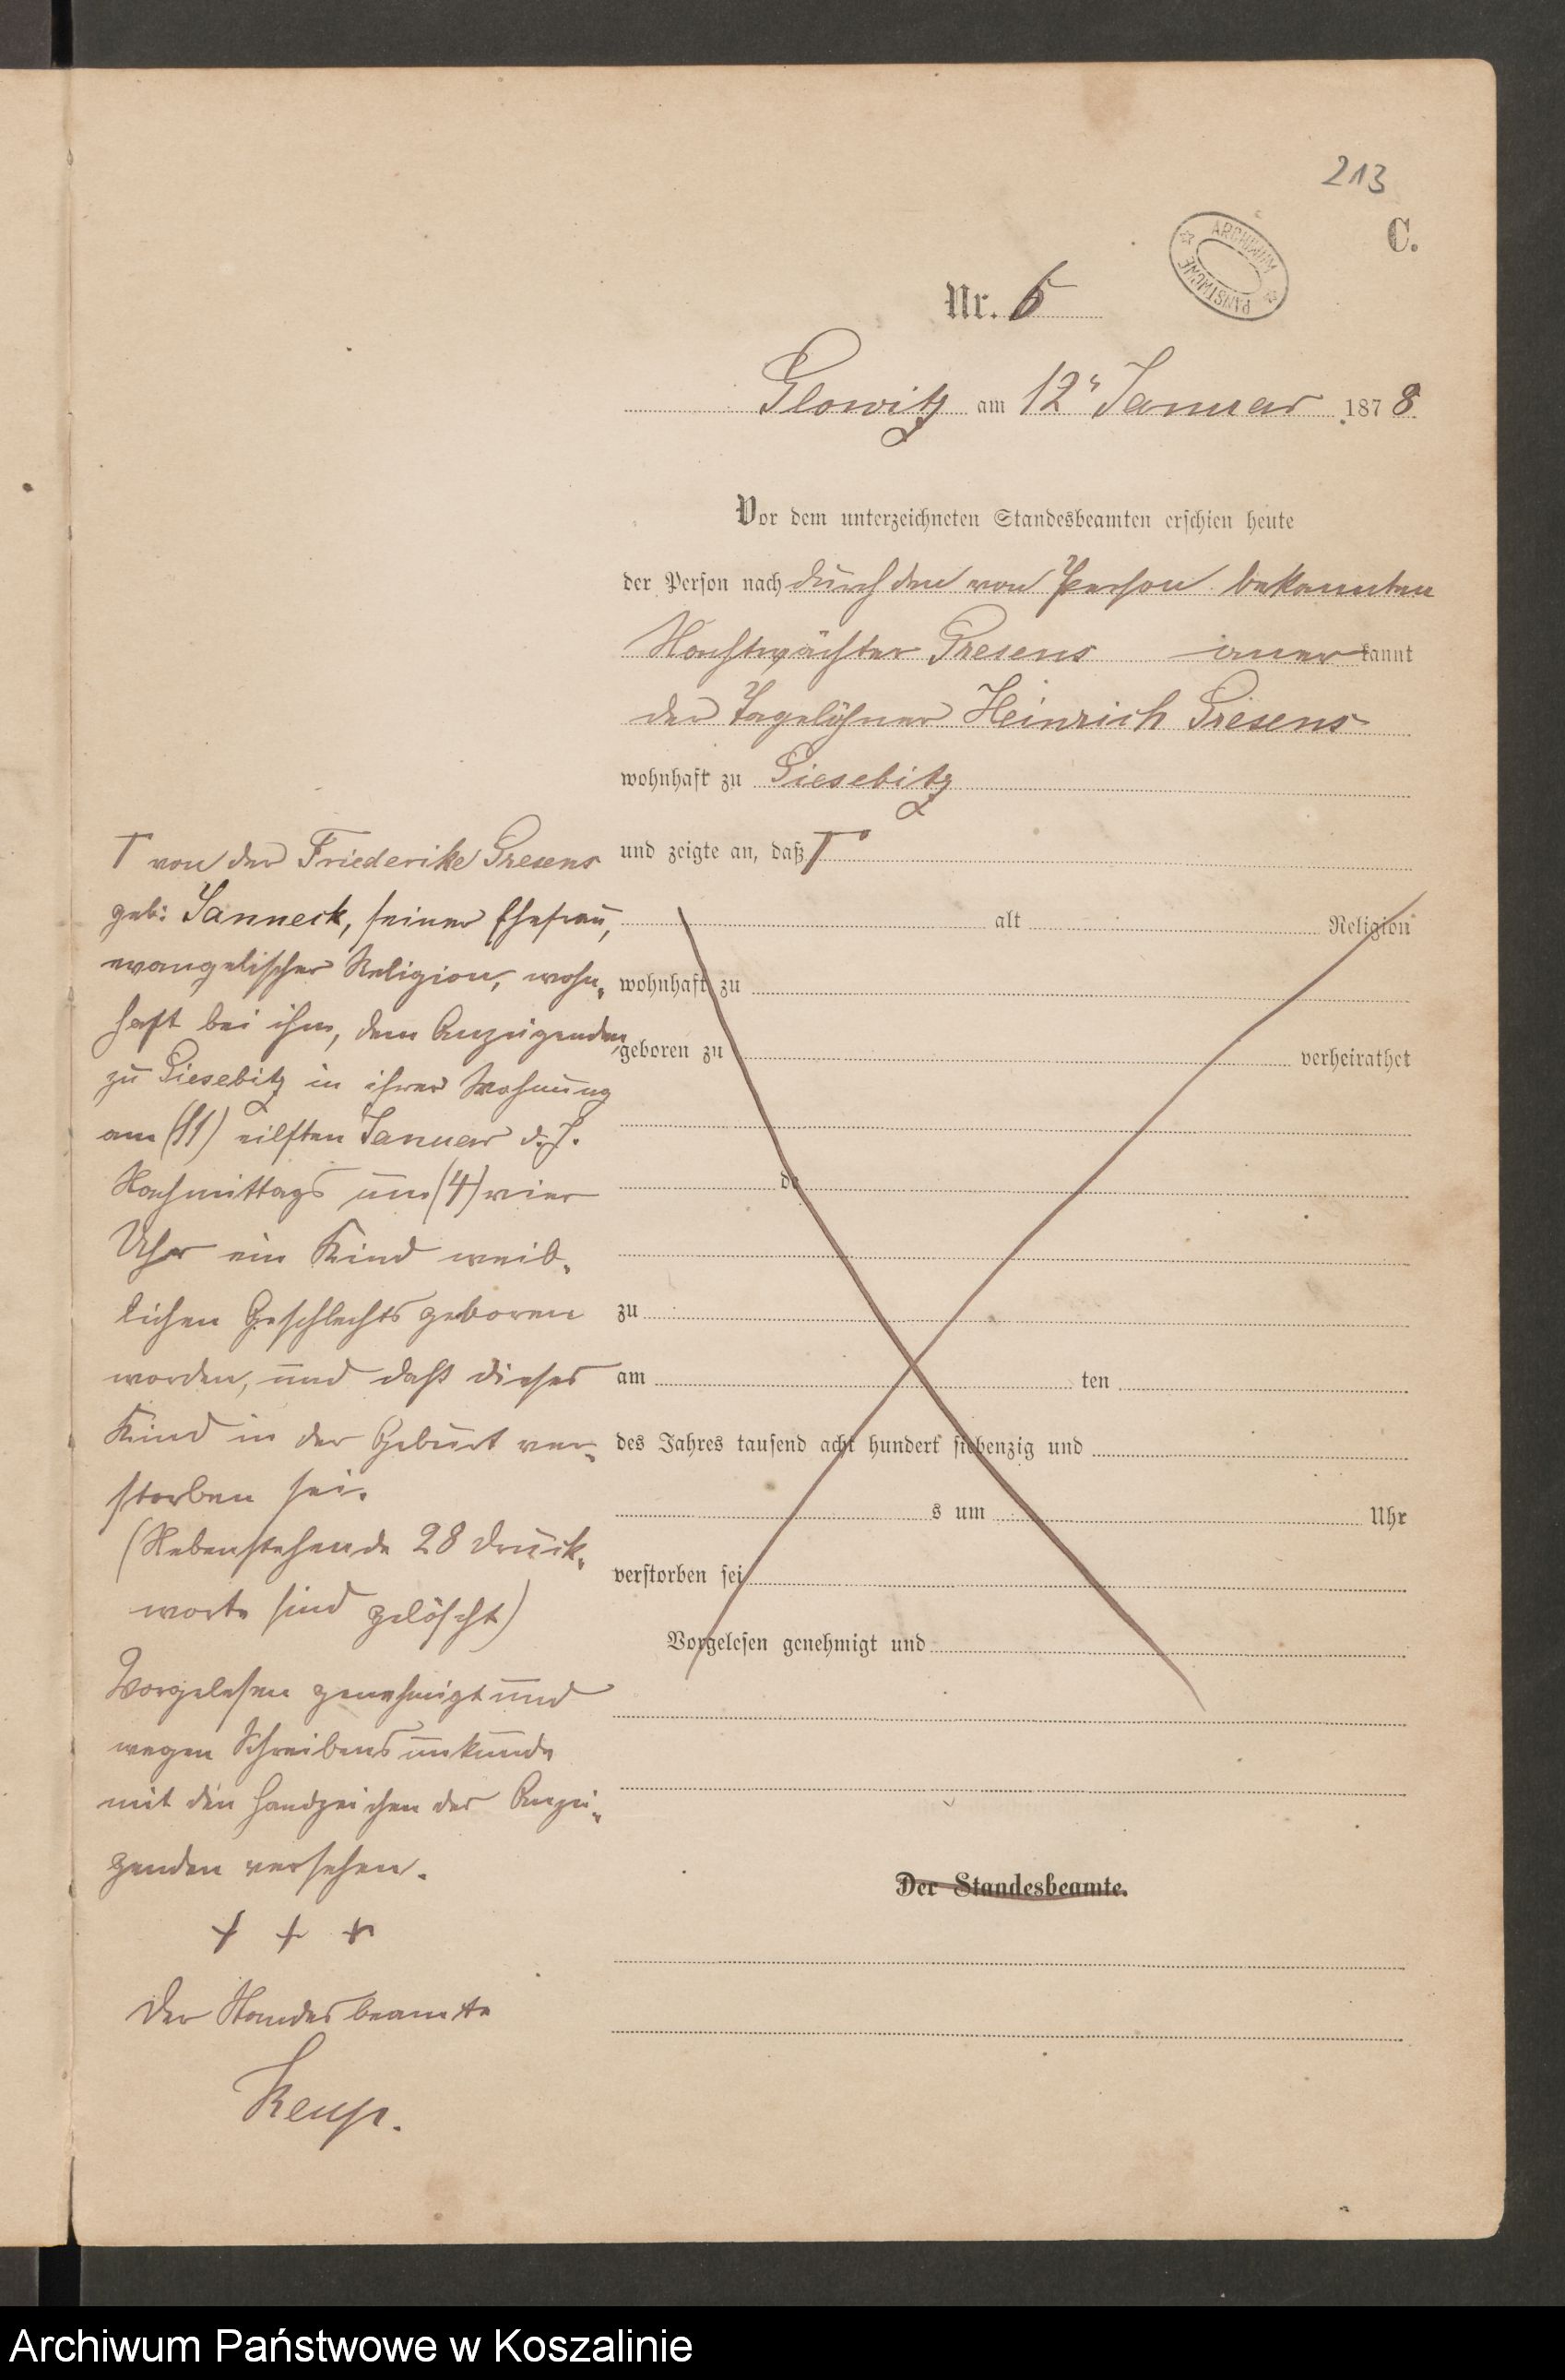 213
C.
ARCHIWUM PAŃSTWOWE
Nr. 6
Glowitz am 12ⁿ Januar 1878
Vor dem unterzeichneten Standesbeamten erschien heute
der Person nach durch den von Person bekannten
Nachtwächter Gresens anerkannt
der Tagelöhner Heinrich Gresens
wohnhaft zu Giesebitz
und zeigte an, daß Γ
alt Religion
wohnhaft zu
geboren zu verheirathet
de
zu
am ten
des Jahres tausend acht hundert siebenzig und
s um Uhr
verstorben sei
Vorgelesen genehmigt und
Der Standesbeamte.
Γ von der Friederike Gresens
geb: Janneck, seiner Ehefrau,
evangelischer Religion, wohn-
haft bei ihm, dem Anzeigenden,
zu Giesebitz in ihrer Wohnung
am (11) eilften Januar d. J.
Nachmittags um (4) vier
Uhr ein Kind weib-
lichen Geschlechts geboren
worden, und daß dieses
Kind in der Geburt ver-
storben sei.
(Nebenstehende 28 Druck-
worte sind gelöscht)
Vorgelesen genehmigt und
wegen Schreibensunkunde
mit den Handzeichen des Anzei-
genden versehen.
+ + +
Der Standesbeamte
Archiwum Państwowe w Koszalinie